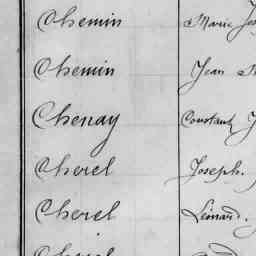 Chemin Marie
Chemin Jean
Chenay Constant
Cherel Joseph.
Cherel Léonard.